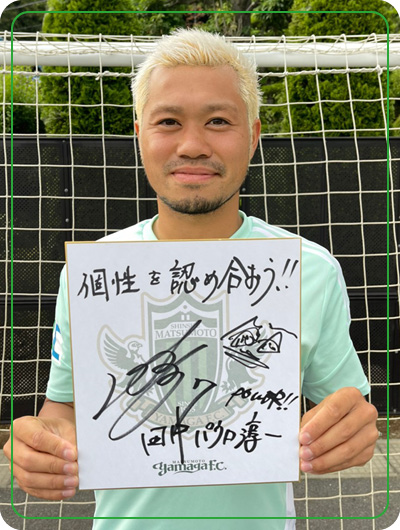 個性を認め合おう!!
SHINSHU
MATSUMOTO
7
POWER!!
田中パウロ淳一
YAMAGA F.C.
MATSUMOTO
Yamaga F.C.